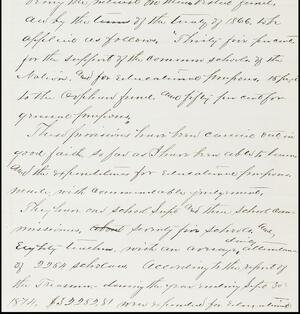 and by the terms of the treaty of 1866, to be
applied as follows. "Thirty five percent
for the support of the common schools of the
Nation, and for Educational purposes 15 per ct
to the Orphan fund and fifty per cent for
general purposes.
These provisions have been carried out in
good faith so far as I have been able to learn
and the expenditures for Educational purposes
made with commendable judgment.
They have one school Supt. and three school com-
missioners, seventy five schools, and
Eighty teachers, with an average daily attendance
of 2254 scholars. According to the report of
the Treasurer during the year ending Sept 30
1874, $ were expended for Educational